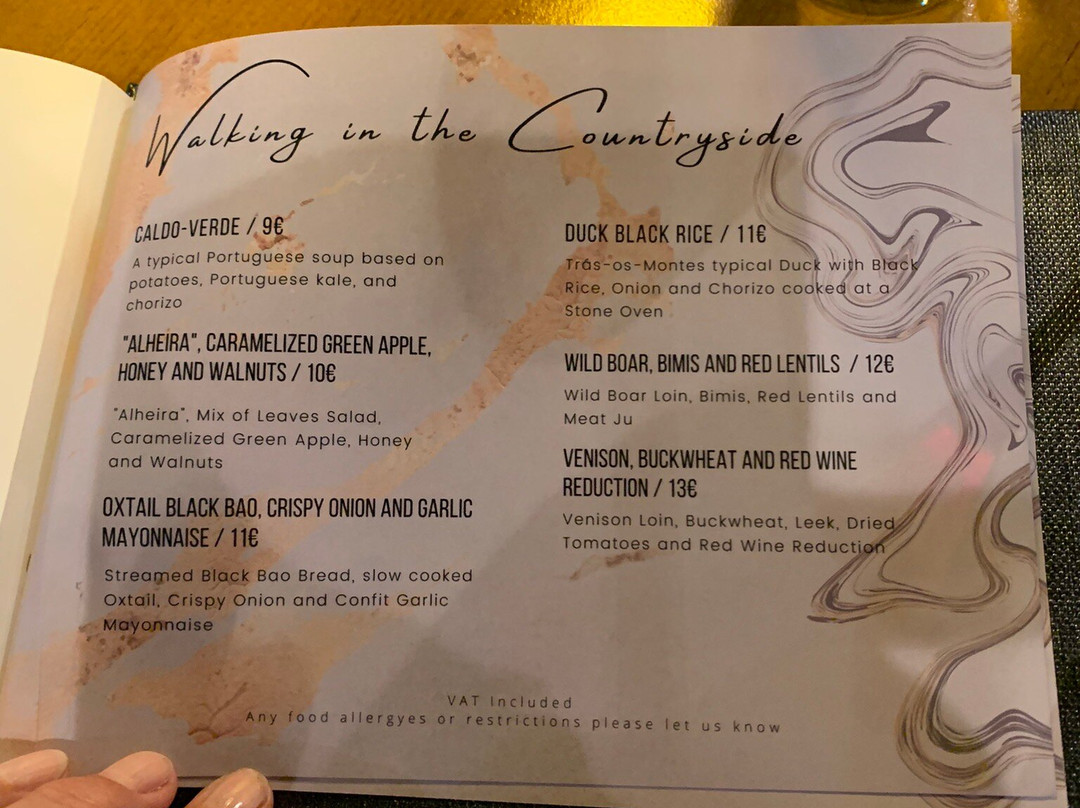 Walking in the Countryside
CALDO-VERDE / 9€
A typical Portuguese soup based on
potatoes, Portuguese kale, and
chorizo
"ALHEIRA", CARAMELIZED GREEN APPLE,
HONEY AND WALNUTS / 10€
"Alheira", Mix of Leaves Salad,
Caramelized Green Apple, Honey
and Walnuts
OXTAIL BLACK BAO, CRISPY ONION AND GARLIC
MAYONNAISE / 11€
Streamed Black Bao Bread, slow cooked
Oxtail, Crispy Onion and Confit Garlic
Mayonnaise
DUCK BLACK RICE / 11€
Trás-os-Montes typical Duck with Black
Rice, Onion and Chorizo cooked at a
Stone Oven
WILD BOAR, BIMIS AND RED LENTILS / 12€
Wild Boar Loin, Bimis, Red Lentils and
Meat Ju
VENISON, BUCKWHEAT AND RED WINE
REDUCTION / 13€
Venison Loin, Buckwheat, Leek, Dried
Tomatoes and Red Wine Reduction
VAT Included
Any food allergyes or restrictions please let us know